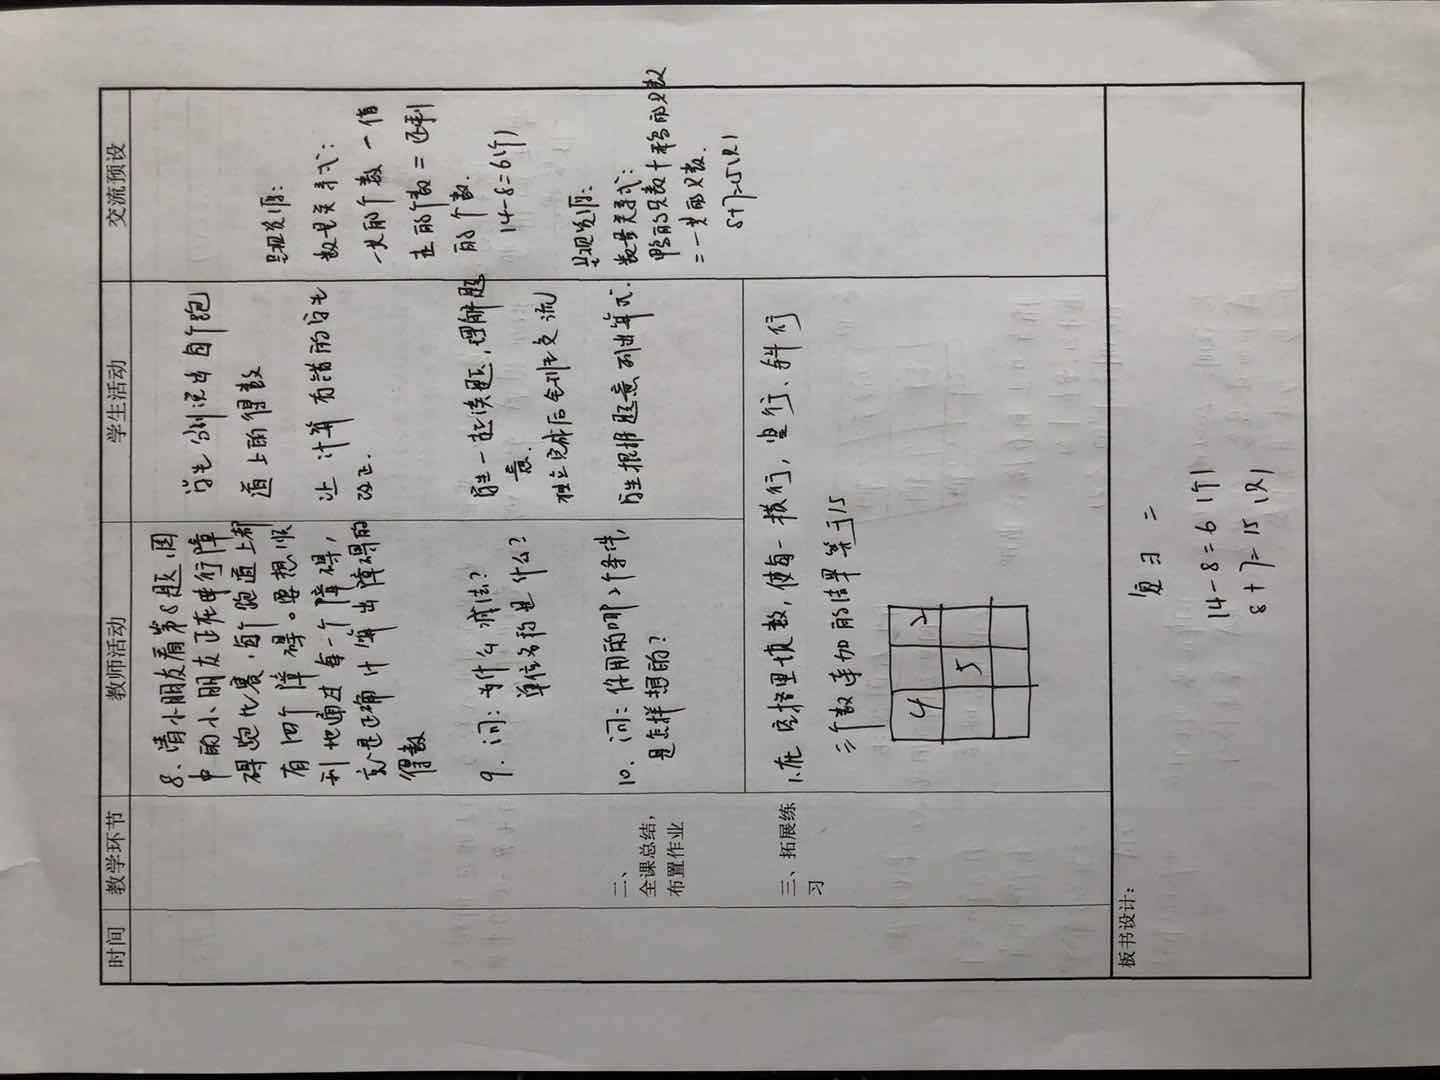 时间
教学环节
教师活动
学生活动
交流预设
8、请小朋友看第8题,图
中的小朋友正在进行障
碍跑比赛,每个跑道上都
有四个障碍。要想顺
利地通过每一个障碍,
就是正确计算出障碍的
得数
学生分别说出每个跑
道上的得数
让计算有错的学生
改正.
9、问:为什么用减法?
单位名称是什么?
学生一起读题,理解题
意.
独立完成后全班交流
数量关系式:
一共的个数一借
走的个数=还剩
的个数.
14-8=6(个)
二、
全课总结,
布置作业
10、问:你用的哪2个条件,
是怎样想的?
学生根据题意列出算式.
数量关系式:
鸭的只数+鹅的只数
=一共的只数.
8+7=15(只)
三、拓展练
习
1、在空格里填数,使每一横行,竖行、斜行
三个数连加的结果等于15
4 2
5
板书设计:
复习二
14-8=6(个)
8+7=15(只)